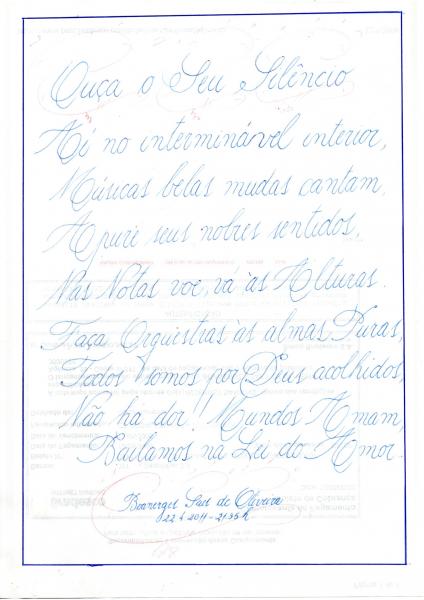 Ouça o Seu Silêncio
Aí no interminável interior,
Músicas belas mudas cantam,
Apure seus nobres sentidos,
Nas Notas voe, vá às Alturas.
Faça Orquestras às almas Puras,
Todos somos por Deus acolhidos,
Não há dor!! Mundos Amam,
Bailamos na Lei do Amor.
de Oliveira
2011 - 21:35 h